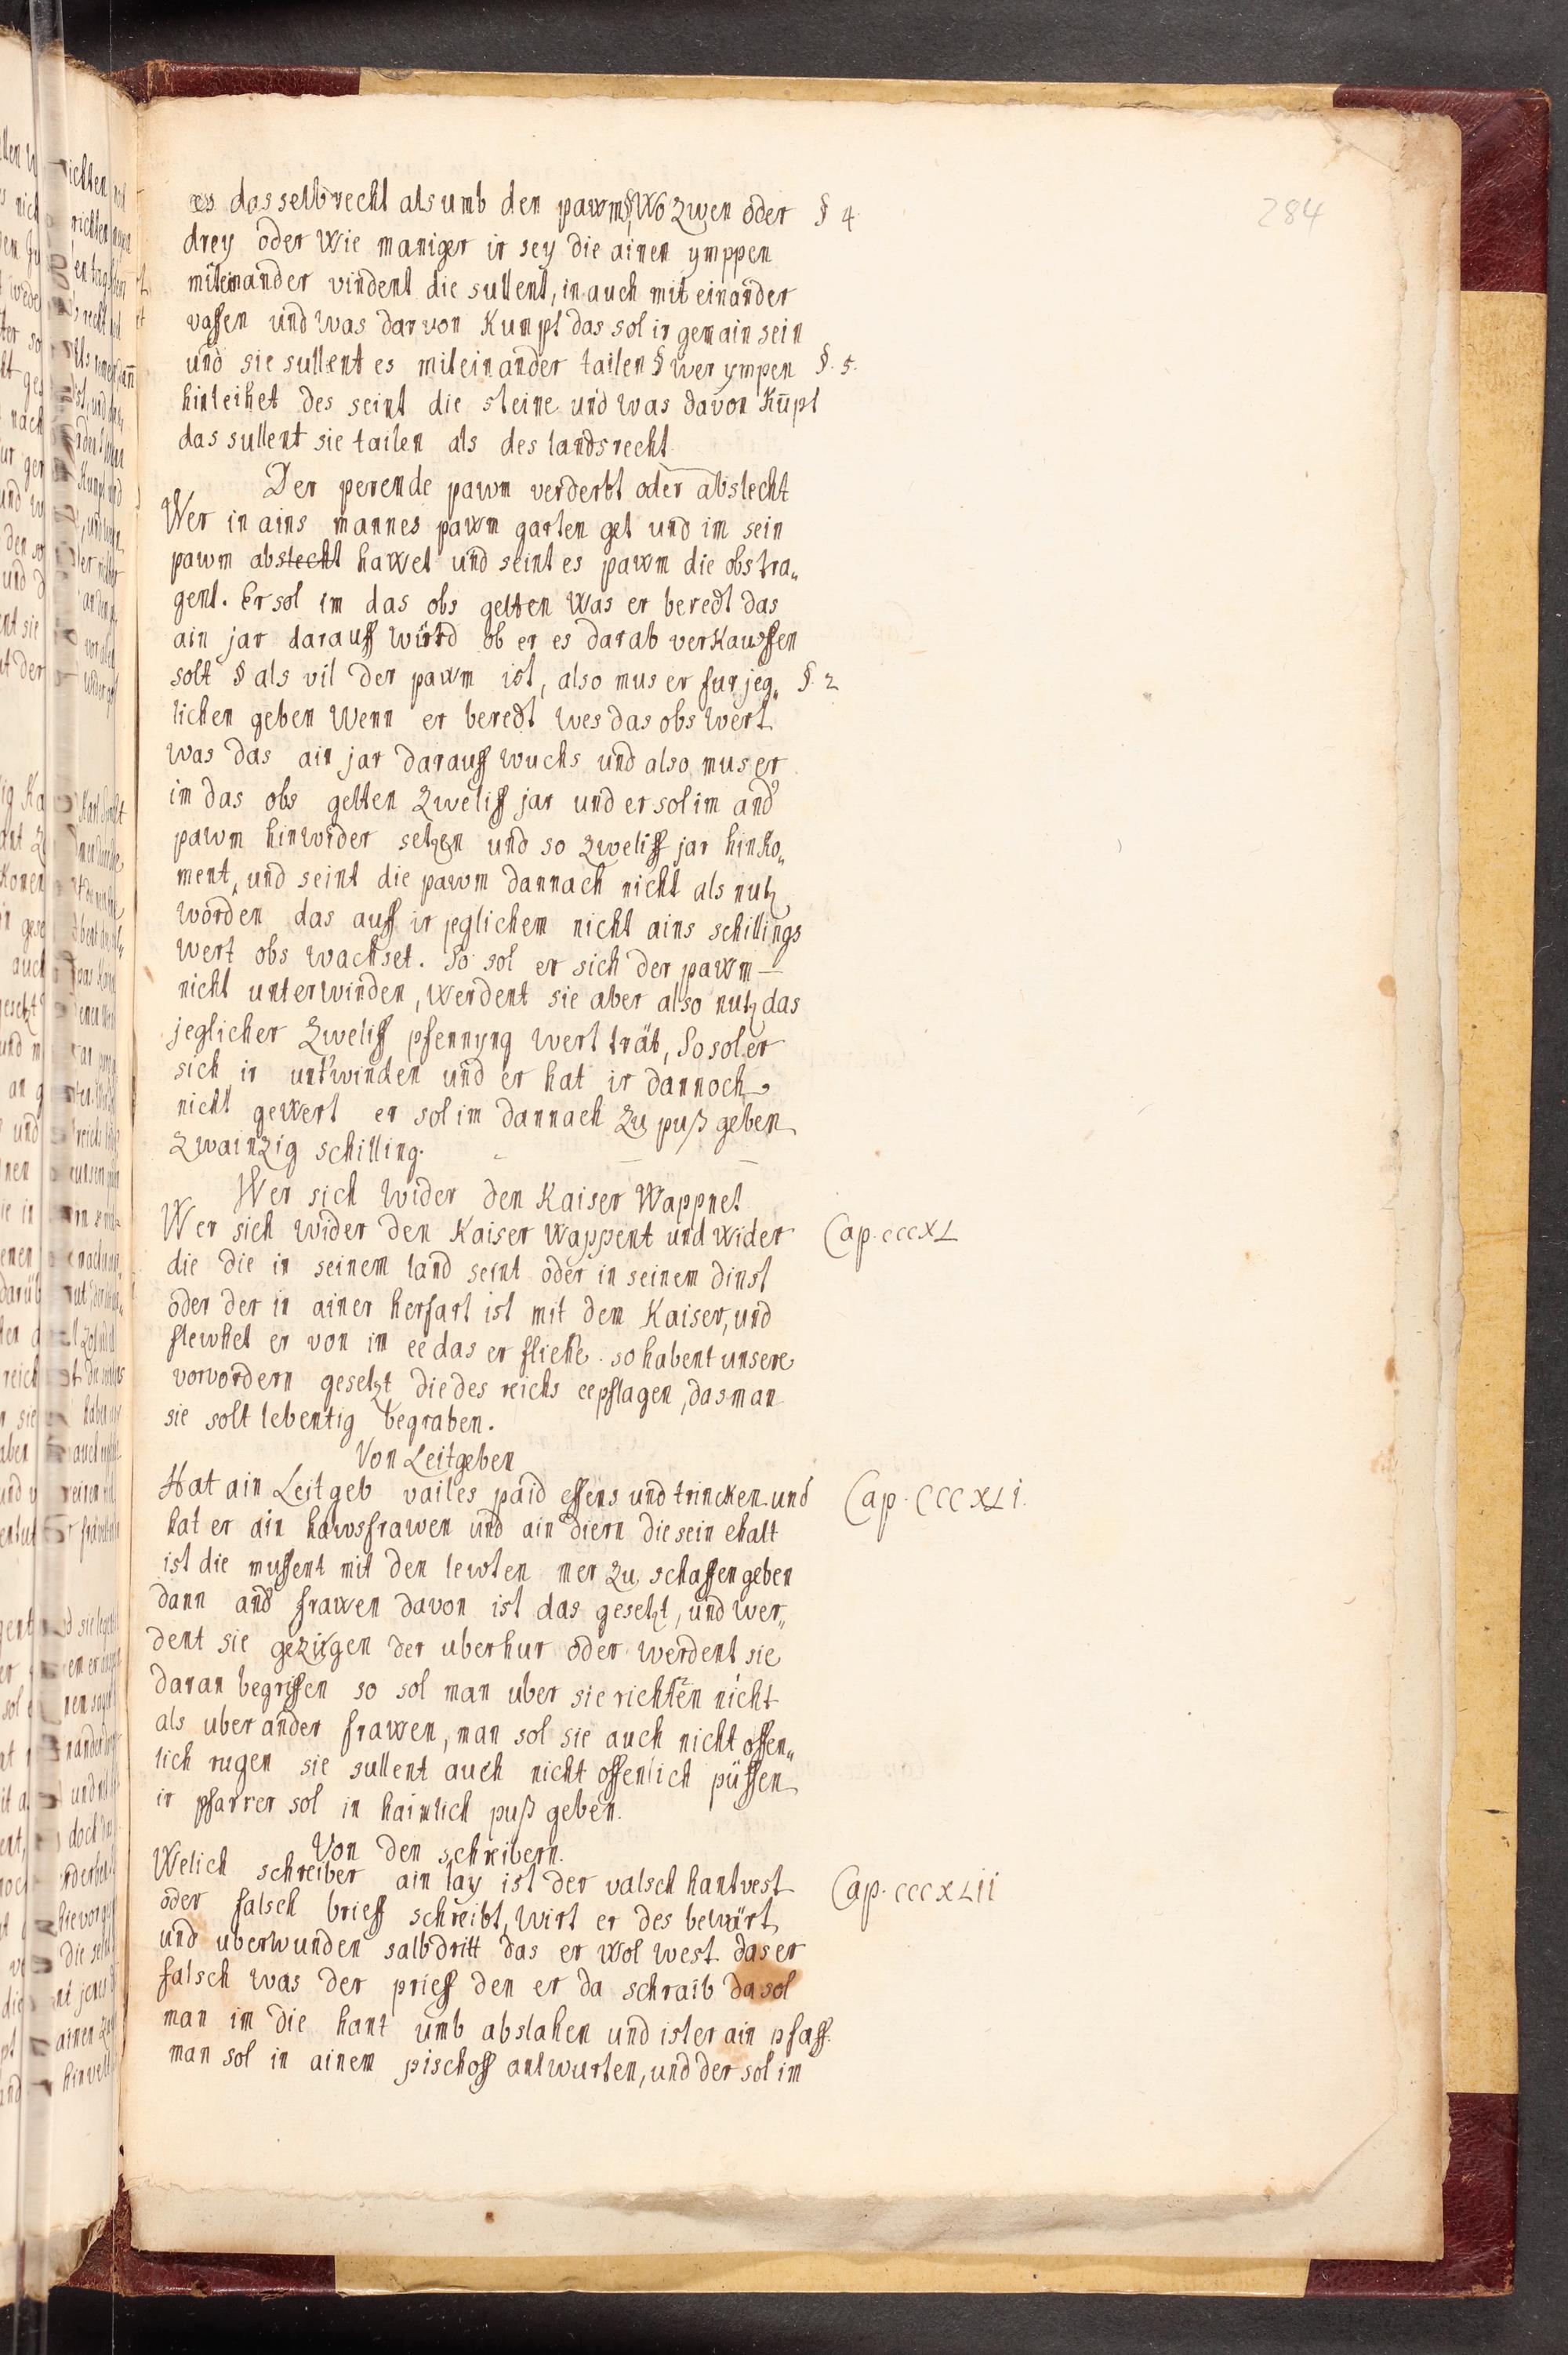 284
es dasselbrecht als umb den pawm §, Wo zwen oder § 4
drey oder Wie maniger ir sey die ainen ymppen
miteinander vindent die sullent, in auch mit einander
vassen und was dar von Kumpt das sol ir gemain sein
und sie sullent es miteinander tailen § wer ympen §. 5.
hinleihet des seint die steine und was davon Kūpt
das sullent sie tailen als des landsrecht
Der perende pawm verderbt oder abslecht
Wer in ains mannes pawm garten get und im sein
pawm abslecht hawet und seint es pawm die obs tra„
gent. Er sol im das obs gelten Was er beredt das
ain jar darauff würd ob er es darab verkauffen
solt § als vil der pawm ist, also mus er fur jeg„ § 2
lichen geben Wenn er beredt wes das obs wert
was das ain jar darauff wuchs und also mus er
im das obs gelten Zweliff jar und er sol im and'
pawm hinwider setzen und so zweliff jar hinko„
ment, und seint die pawm dannach nicht als nutz
worden das auff ir jeglichem nicht ains schillings
wert obs wachset. So sol er sich der pawm —
nicht unterwinden, werdent sie aber also nutz das
jeglicher Zweliff pfennyng wert trät, So sol er
sich ir unt'winden und er hat ir dannoch
nicht gewert er sol im dannach zu puß geben
Zwainzig schilling.
Wer sich wider den Kaiser Wappnet
Wer sich wider den Kaiser wappent und wider Cap. cccXL
die die in seinem land seint oder in seinem dinst
oder der in ainer herfart ist mit dem Kaiser, und
flewhet er von im ee das er fliehe. so habent unsere
vorvordern gesetzt die des reichs ee pflagen, das man
sie solt lebentig begraben.
Von Leitgeben
Hat ain Leitgeb vailes paid essens und trincken und Cap. CCCXLi.
hat er ain hawsfrawen und ain diern die sein ehalt
ist die mussent mit den lewten mer zu schaffen geben
dann and' frawen davon ist das gesetzt, und wer„
dent sie gezigen der uberhur oder werdent sie
daran begriffen so sol man uber sie richten nicht
als uber ander frawen, man sol sie auch nicht offen„
lich rugen sie sullent auch nicht offenlich püssen
ir pfarrer sol in haimlich puß geben.
Von den schreibern.
Welich schreiber ain lay ist der valsch hantvest Cap. cccXLii
oder falsch brieff schreibt, wirt er des bewärt
und uberwunden salbdritt das er wol west das er
falsch was der prieff den er da schraib da sol
man im die hant umb abslahen und ist er ain pfaff.
man sol in ainem pischoff antwurten, und der sol im